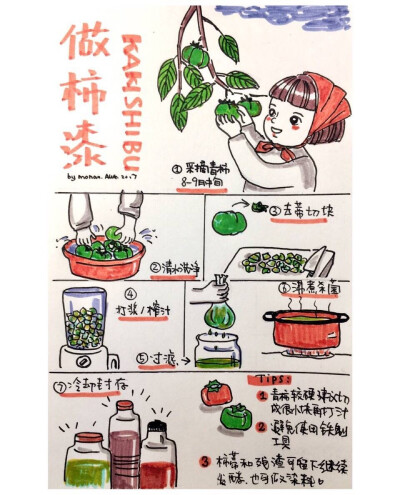 做柿漆
KAKISHIBU
① 采摘青柿
8-9月中旬
② 清水洗净
③ 去蒂切块
④
打浆/榨汁
⑤ 过滤
⑥ 沸煮杀菌
⑦ 冷却封存
Tips:
1 青柿较硬建议切
成很小块再打汁
2 避免使用铁制
工具
3 柿蒂和碎渣可留下继续
发酵,也可做染料。